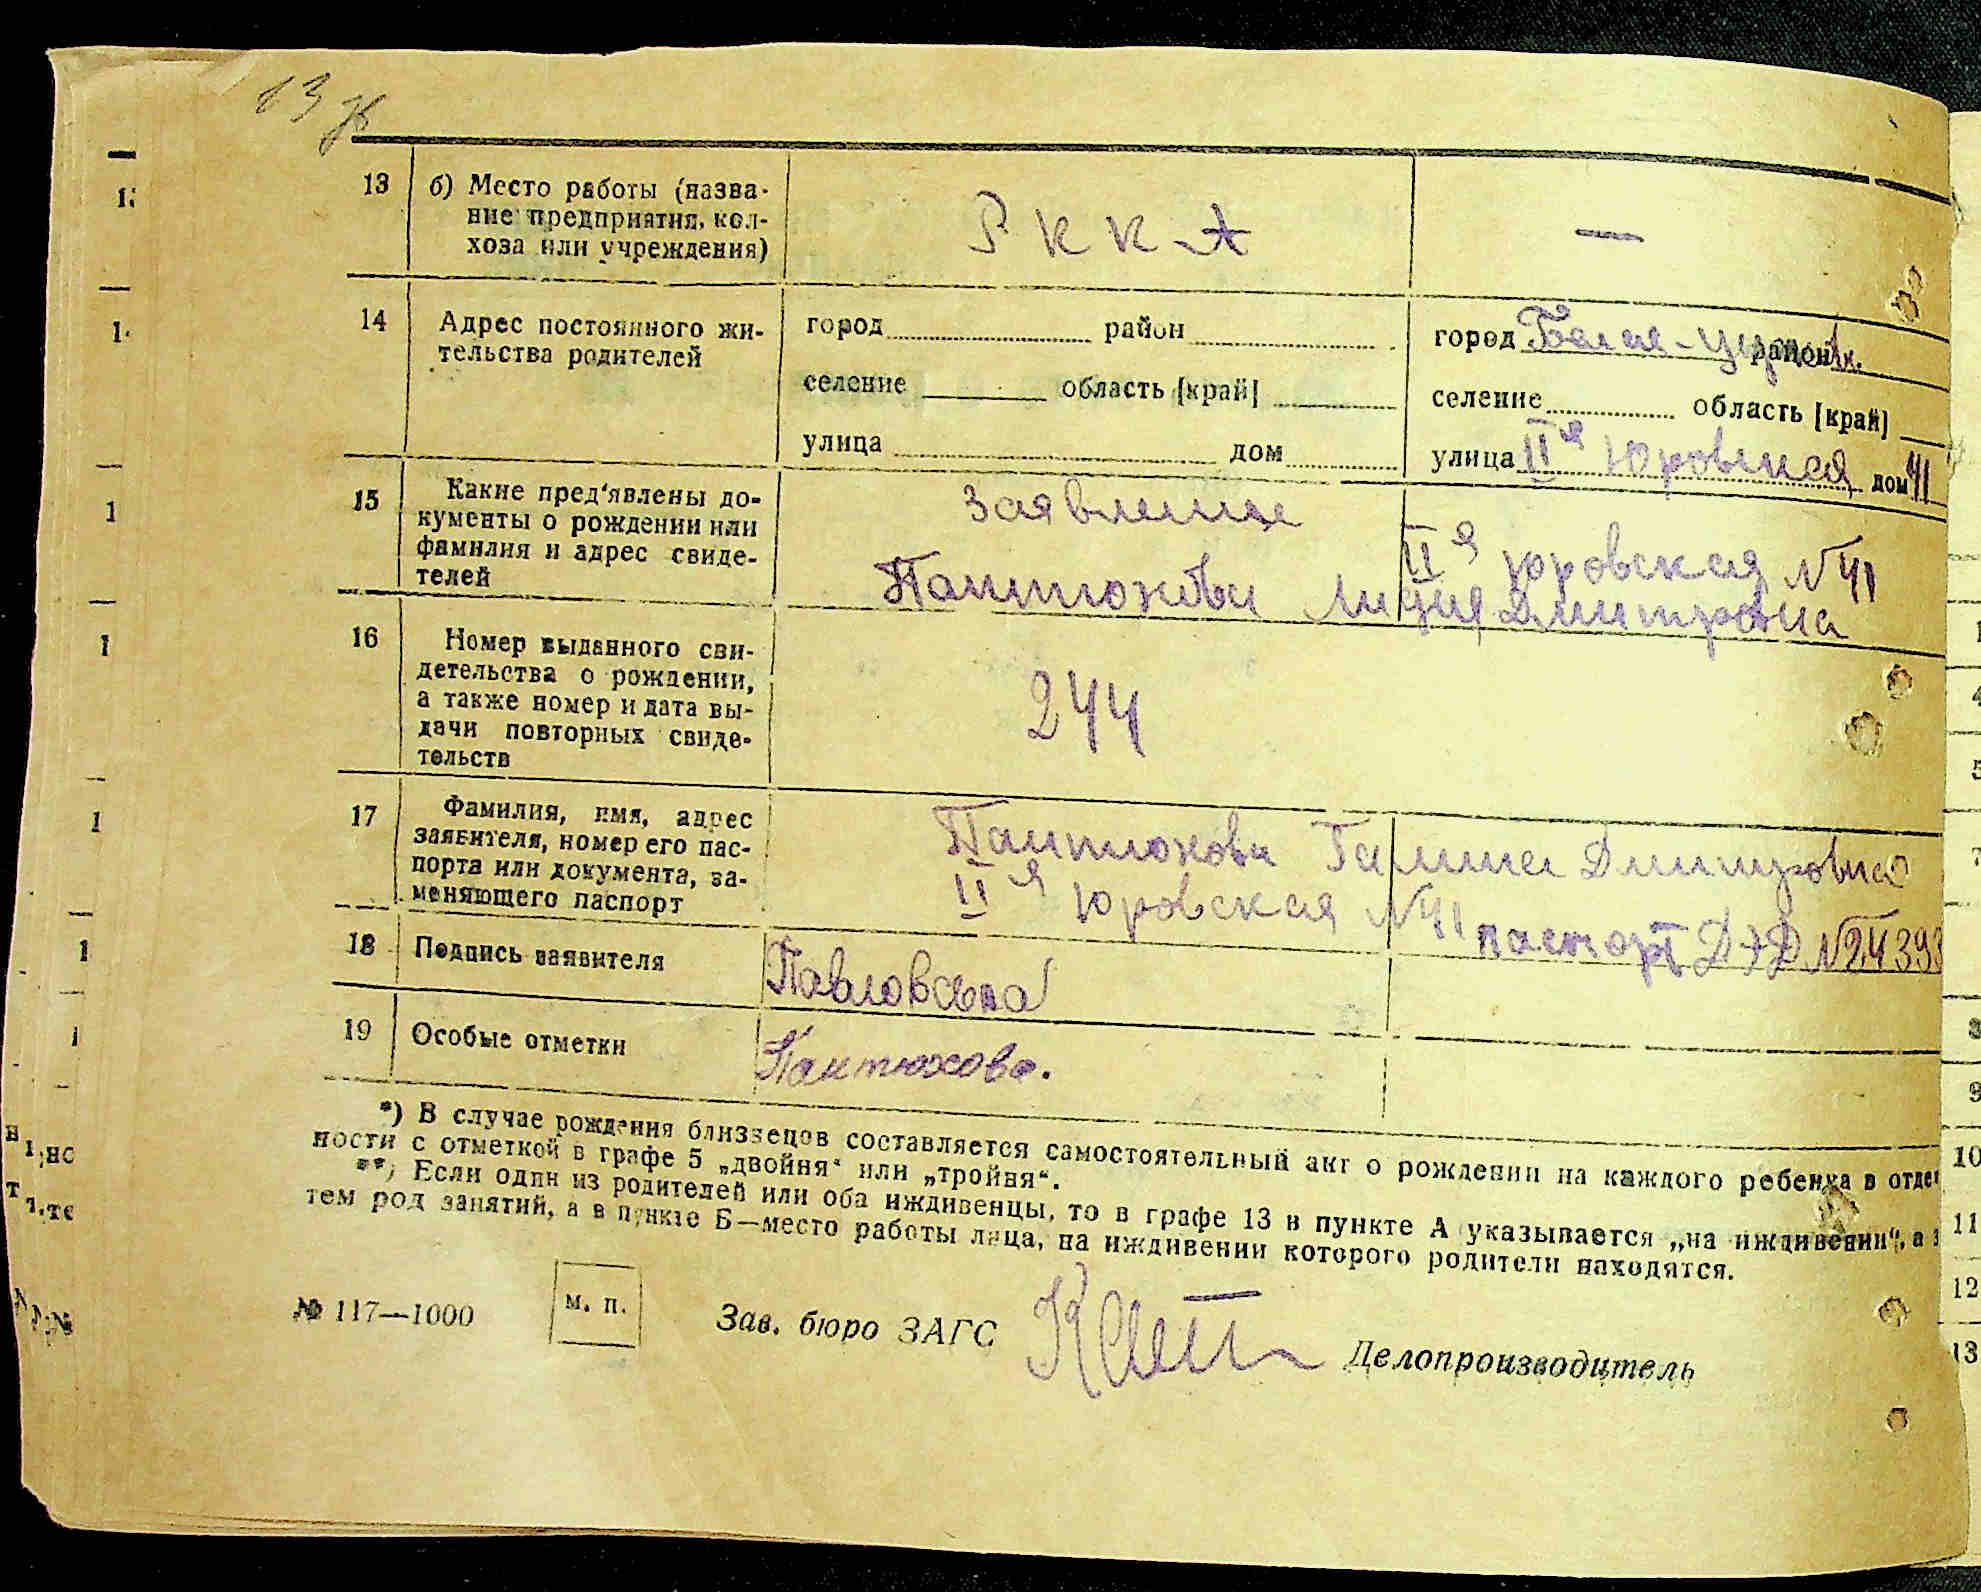 13
13 б) Место работы (назва-
ние предприятия, кол-
хоза или учреждения)
Р К К А
—
14 Адрес постоянного жи-
тельства родителей
город район
селение область [край]
улица дом
город Белая-Церковь район
селение область [край]
улица IIя Юровская дом 41
15 Какие пред'явлены до-
кументы о рождении или
фамилия и адрес свиде-
телей
Заявление
IIя Юровская N 41
Пантюхова Лидия Дмитровна
16 Номер выданного сви-
детельства о рождении,
а также номер и дата вы-
дачи повторных свиде-
тельств
244
17 Фамилия, имя, адрес
заявителя, номер его пас-
порта или документа, за-
меняющего паспорт
Пантюхова Галина Дмитровна
IIя Юровская N 41 паспорт ДЭД N 24393
18 Подпись заявителя
19 Особые отметки
Пантюхова.
*) В случае рождения близнецов составляется самостоятельный акт о рождении на каждого ребенка в отде
ности с отметкой в графе 5 „двойня" или „тройня".
**) Если один из родителей или оба иждивенцы, то в графе 13 в пункте А указывается „на иждивении", а з
тем род занятий, а в пункте Б—место работы лица, на иждивении которого родители находятся.
№ 117—1000
м. п.
Зав. бюро ЗАГС
Делопроизводитель